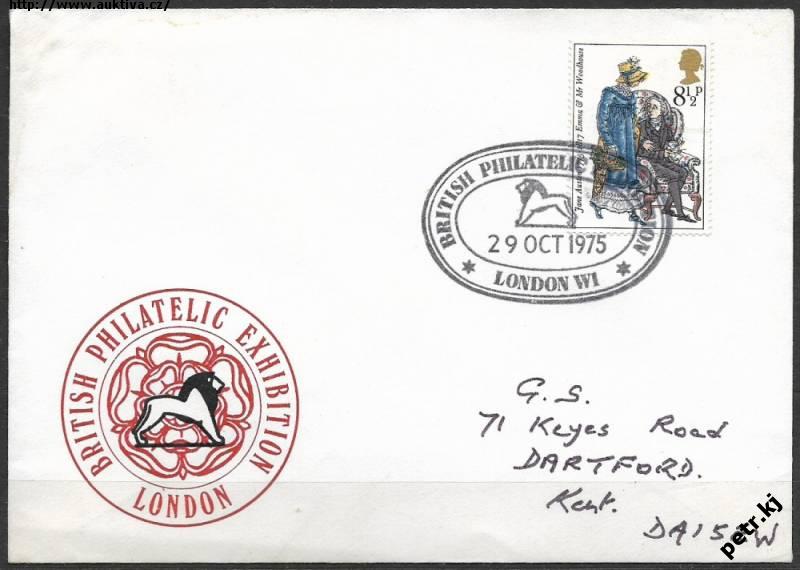 http://www.auktiva.cz/
Emma & Mr Woodhouse
Jane
8½P
BRITISH PHILATELIC
29 OCT 1975
LONDON W1
BRITISH PHILATELIC EXHIBITION
LONDON
G.S.
71 Keyes Road
DARTFORD.
Kent.
DA1 5
petr.kj